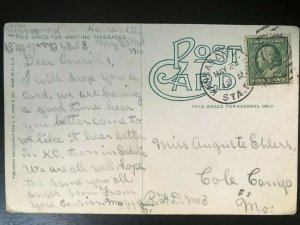 THIS SPACE FOR WRITING MESSAGES
Kansas City
Dear Cousin!
I will drop you a
card, we are having
a good time hear
you better come to
we like it hear better
in K.C. then in
We are all well, hope
the same you all.
answer soon From
your Cousin
POST
CARD
THIS SPACE FOR ADDRESS ONLY
KANSAS
STA.
Miss Auguste Ehlers.
Cole Camp
R.F.D. No 3
Mo.